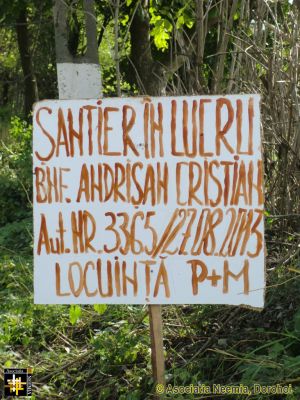 ȘANTIER ÎN LUCRU
BNF. ANDRIȘAN CRISTIAN
Aut. NR. 3365/27.08.2013
LOCUINTĂ P+M
© Asociatia Neemia, Dorohoi